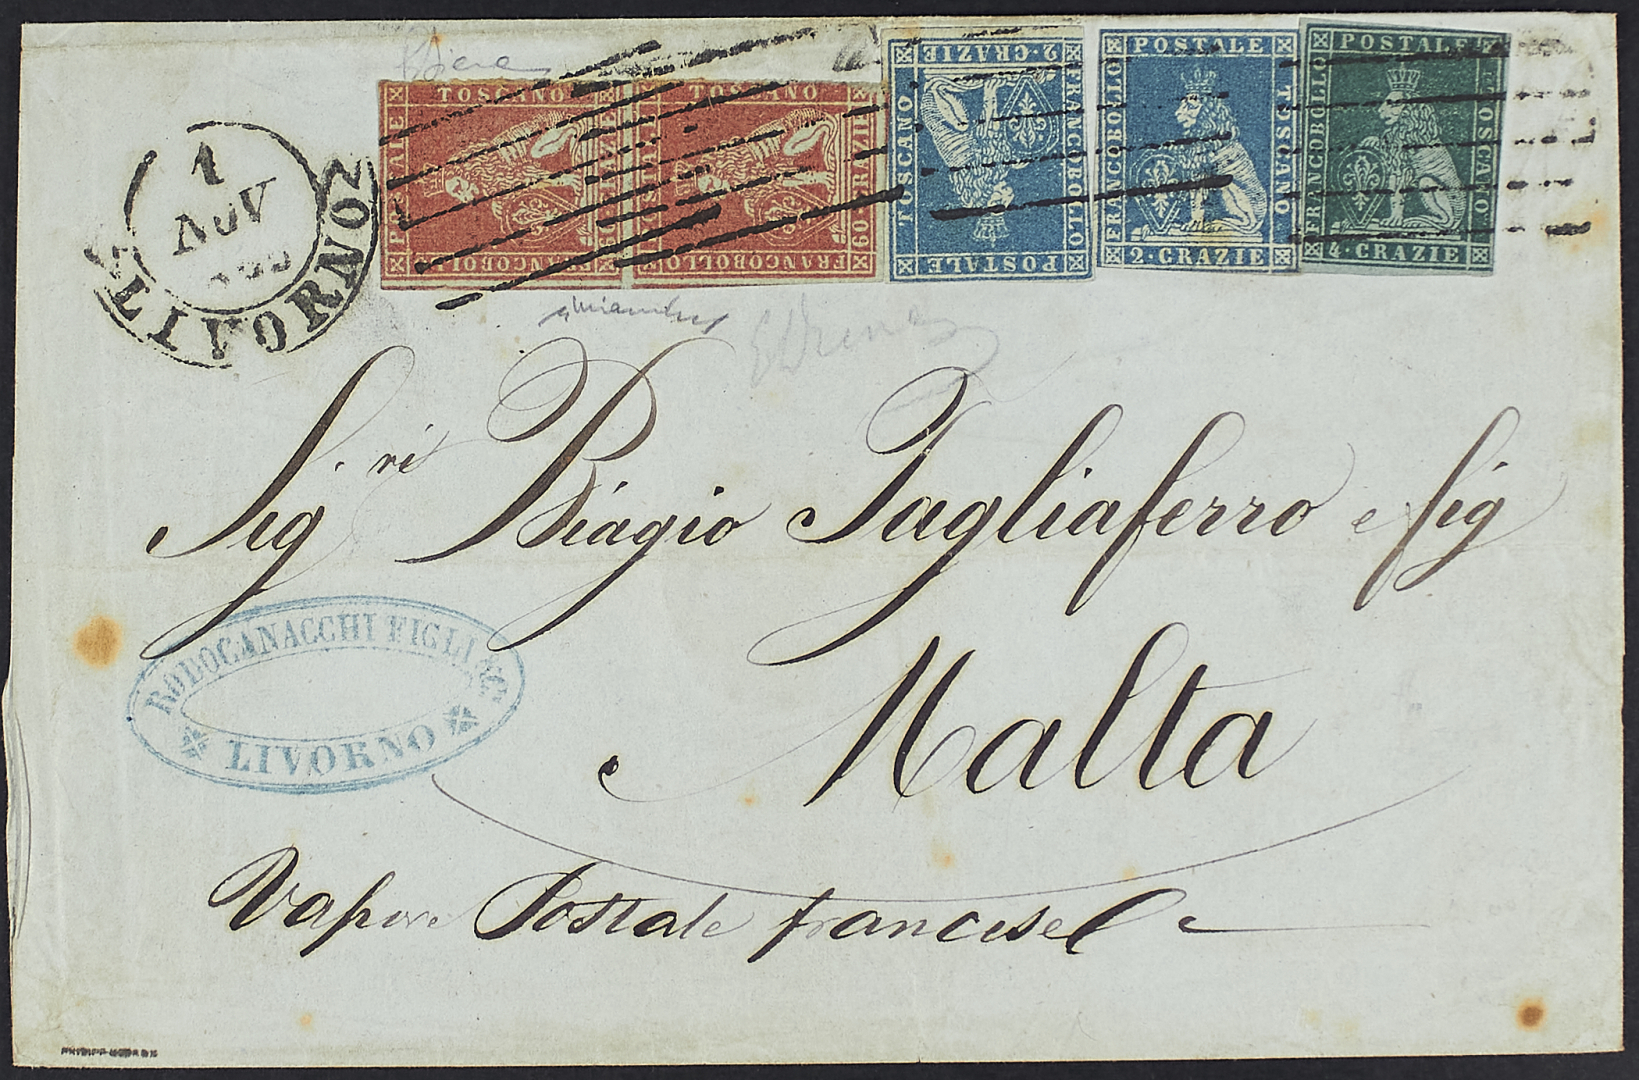 POSTALE
TOSCANO
60·CRAZIE
FRANCOBOLLO
POSTALE
TOSCANO
60·CRAZIE
FRANCOBOLLO
POSTALE
TOSCANO
2·CRAZIE
FRANCOBOLLO
POSTALE
FRANCOBOLLO
TOSCANO
2·CRAZIE
POSTALE
FRANCOBOLLO
TOSCANO
4·CRAZIE
1
NOV
LIVORNO
Sig.ri Biagio Tagliaferro e fig
RODOCANACCHI FIGLI & C.
LIVORNO
Malta
Vapore Postale francese